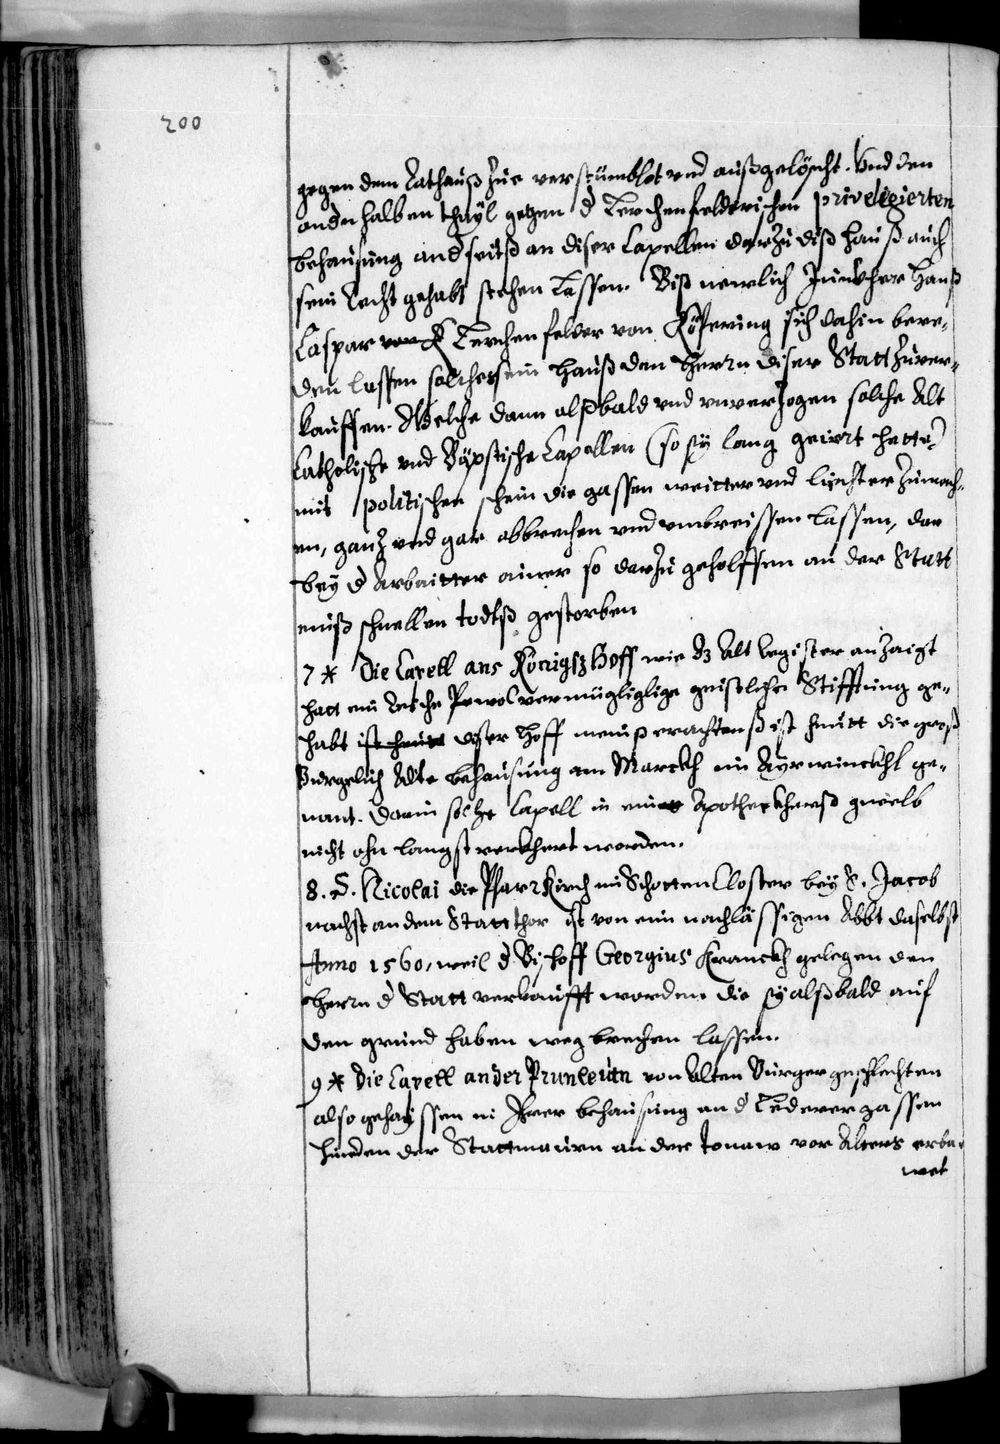 200
gegen dem Rathauß zue verstümblet und außgelöscht. Und den
andn halben thayl gegen d Lerchenfelderischen privelegierten
behausung andseitß an diser Capellen darzu diß hauß auch
sein Recht gehabt stehen lassen. Biß newlich Junckher Hanß
Caspar von Lerchenfelder von Köfering sich dahin bere-
den lassen solches sein Hauß den Herrn diser Statt zuver-
kauffen. Welche dann alßbald und unverzogen solche Alt
Catholische und Bäpstische Capellen (so sy lang geirrt hatte)
mit politischen schein die gassen weitter und liechter zumach-
en, ganz und gar abbrechen und umbreissen lassen, dar
bey d Arbaitter ainer so darzu geholffen an der Statt
eniß schnellen todtß gestorben
7 * Die Capell ans Königsz Hoff wie dz Alt Register anzaigt
hatt ein Reiche wolvermügliglige geistliche Stifftung ge-
habt ist heutt diser Hoff meinß erachtenß ist heutt die groß
Burgelich Alte behausung am Marckh im Ayrwinckhl ge-
nant. Darin solche Capell in eines Apotheckherß gwelb
nicht ohn langst verkhert worden.
8. S. Nicolai die Pfarr Kirch im Schotten Closter bey S. Jacob
nachst an dem Statt thor ist von eim nachlässigen Abbt daselbst
Anno 1560, weil d Bischoff Georgius kranckh gelegen den
Herrn d Statt verkaufft worden die sy alßbald auf
den grund haben weg brechen lassen.
9 * Die Capell an der Prunleitn von Alten Burger geschlechten
also gehayssen in Ihrer behausung an d Lederer gassen
hinden der Stattmaurn an der Tonaw vor Alters erba-
wet